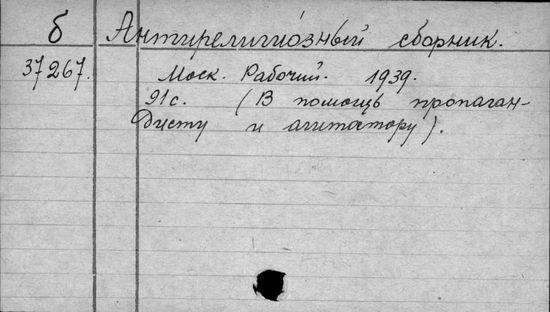 б Антирелигиозный сборник.
37267. Моск. Рабочий. 1939.
91с. (В помощь пропаган-
дисту и агитатору).